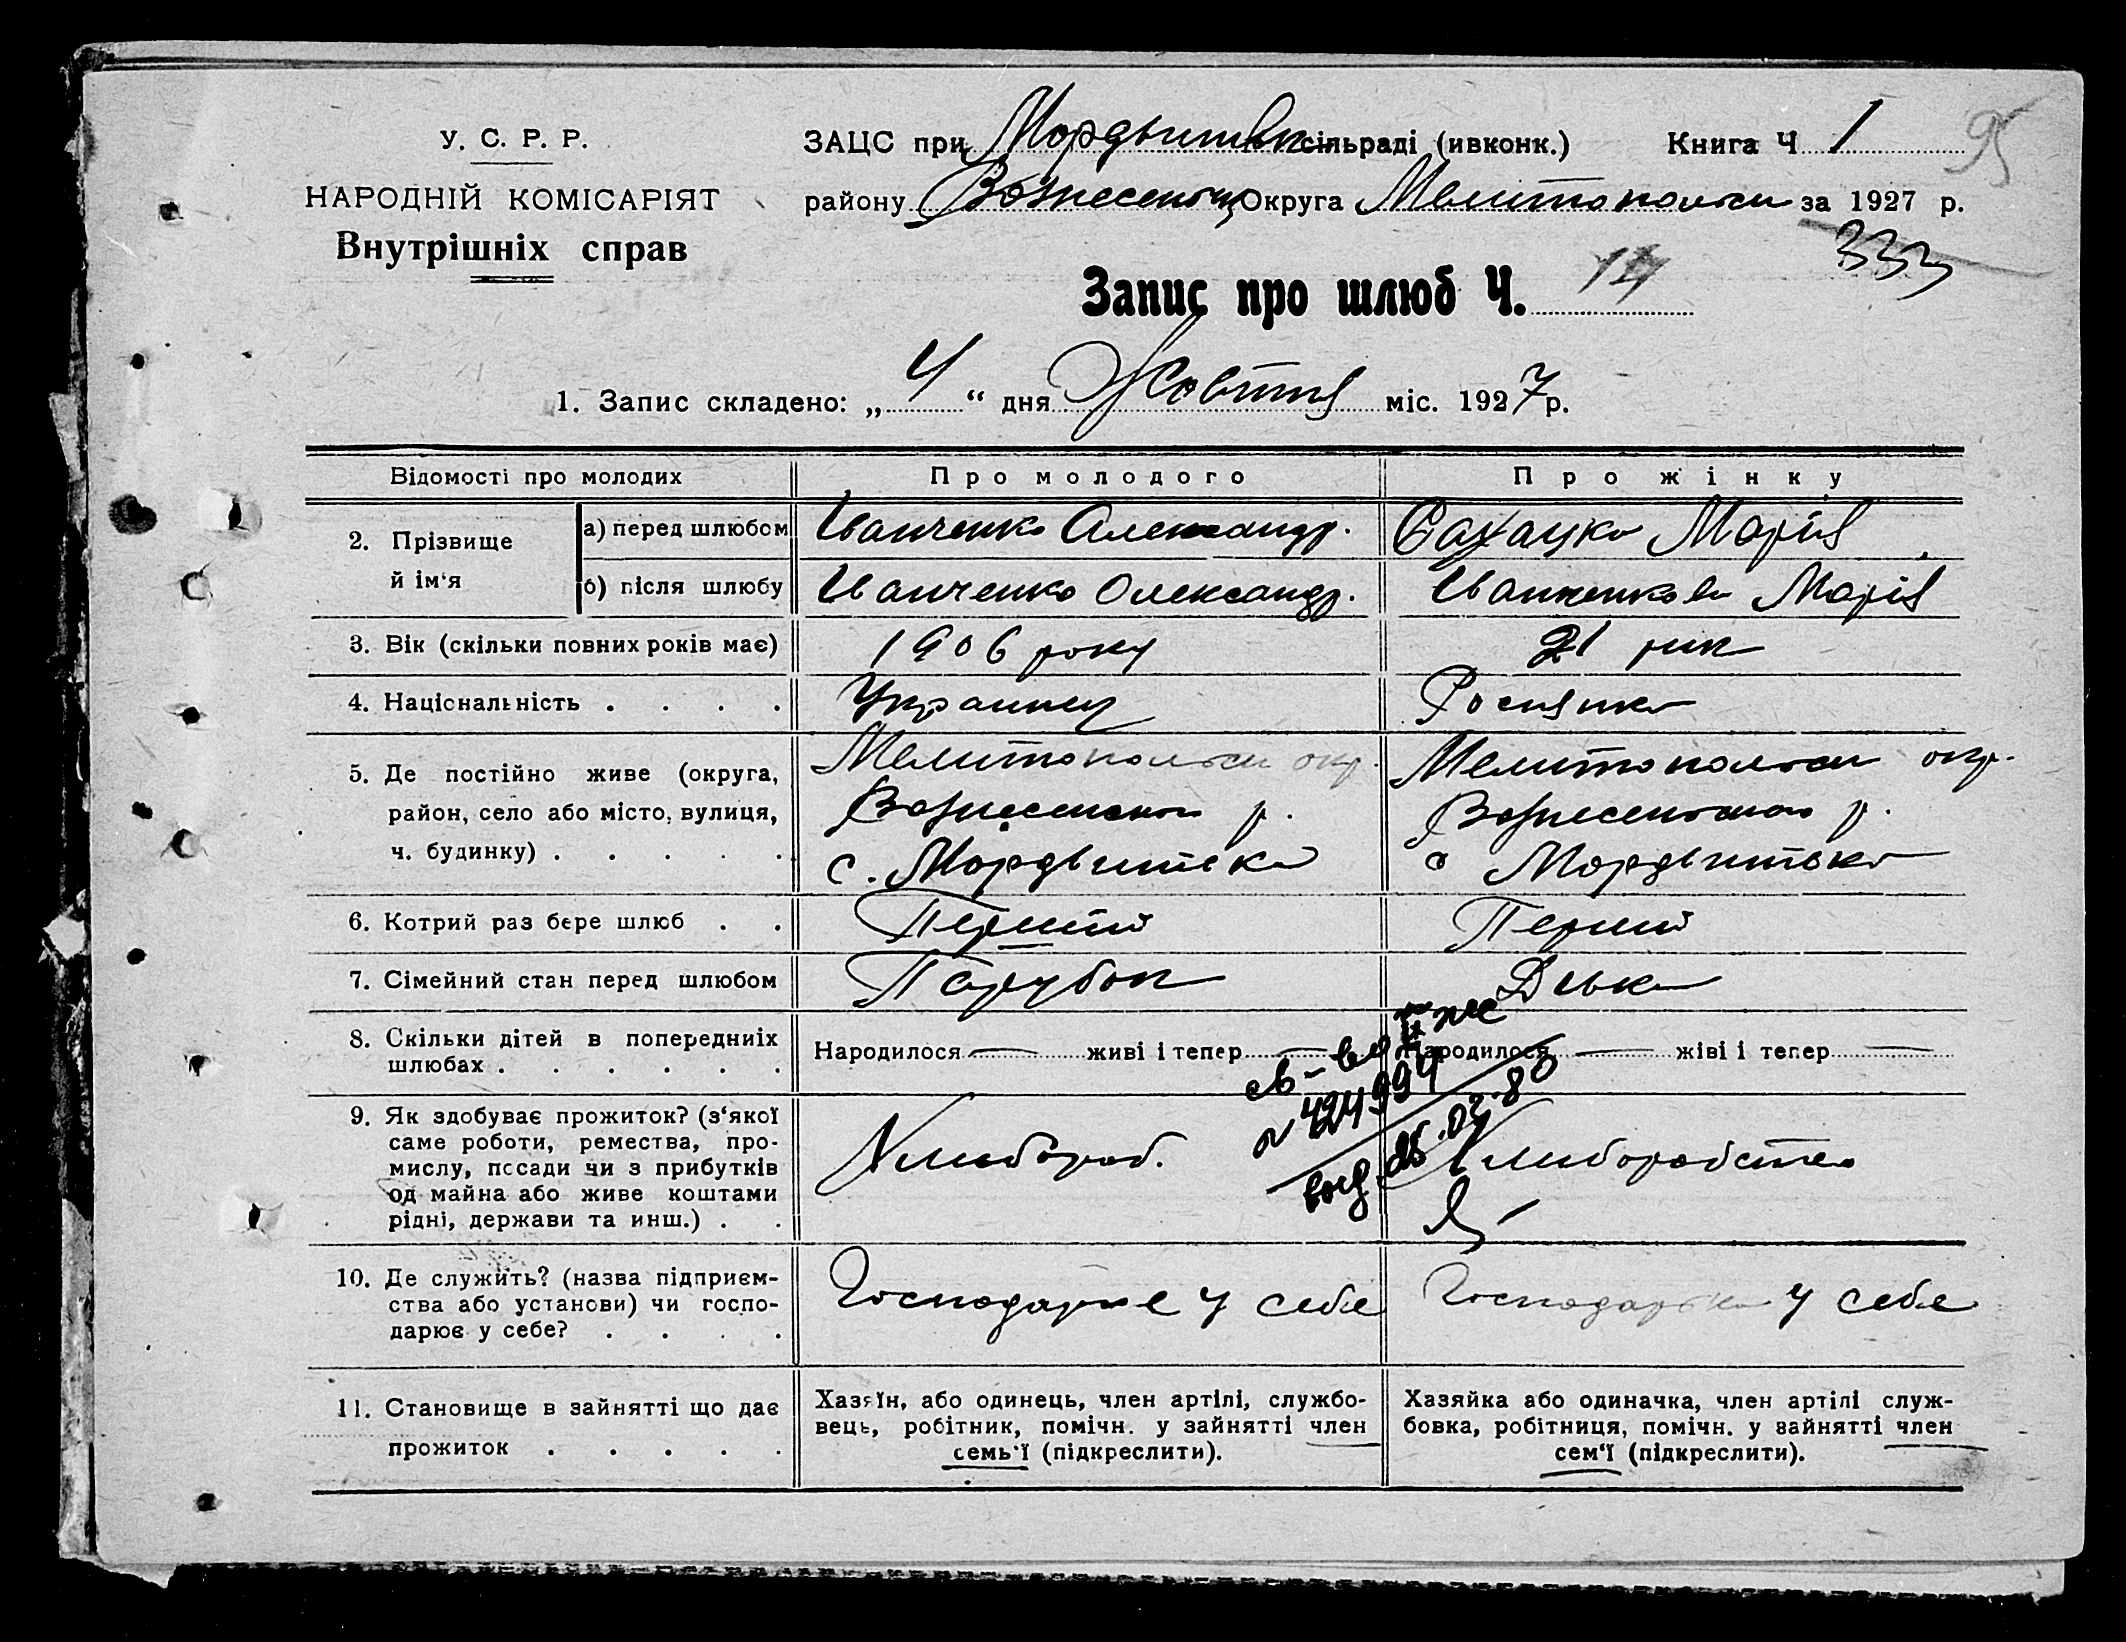 95
У. С. Р. Р.
НАРОДНІЙ КОМІСАРІЯТ
Внутрішніх справ
ЗАЦС при Мордвинівк сільраді (ивконк.) Книга Ч 1
району Вознесенськ Округа Мелитопольськ за 1927 р.
333
Запис про шлюб Ч. 14
1. Запис складено: „ 4 “ дня Жовтня міс. 1927 р.
Відомості про молодих Про молодого Про жінку
2. Прізвище й ім‘я
а) перед шлюбом Іванченко Александр. Марія
б) після шлюбу Іванченко Олександр. Іванченкова Марія
3. Вік (скільки повних років має) 1906 року 21 рік
4. Націснальність . . . . Украинец Росіянка
5. Де постійно живе (округа, Мелитопольськ окр. Мелитопольськ окр.
район, село або місто, вулиця, Вознесенськ р. Вознесенського р.
ч. будинку) . . . . . с. Мордвинівка с Мордвинівка
6. Котрий раз бере шлюб . . Перший Перший
7. Сімейний стан перед шлюбом Парубок Дівка
8. Скільки дітей в попередниіх Народилося — живі і тепер — Народилося — жіві і тепер —
шлюбах . . . . . .
№ 424994
25.02.80
9. Як здобуває прожиток? (з‘якої
саме роботи, ремества, про-
мислу, пссади чи з прибутків Хлибороб. Хлиборобство
од майна або живе коштами
рідні, держави та инш.) . .
10. Де служить? (назва підприєм- Господарює у себе Господарька у себе
ства або установи) чи госпо-
дарює у себе? . . . .
11. Становище в зайнятті що дає
прожиток . . . . .
Хазяїн, або одинець, член артілі, службо-
вець, робітник, помічн. у зайнятті член
семь‘ї (підкреслити).
Хазяйка або одиначка, член артілі служ-
бовка, робітниця, помічн. у зайнятті член
сем‘ї (підкреслити).